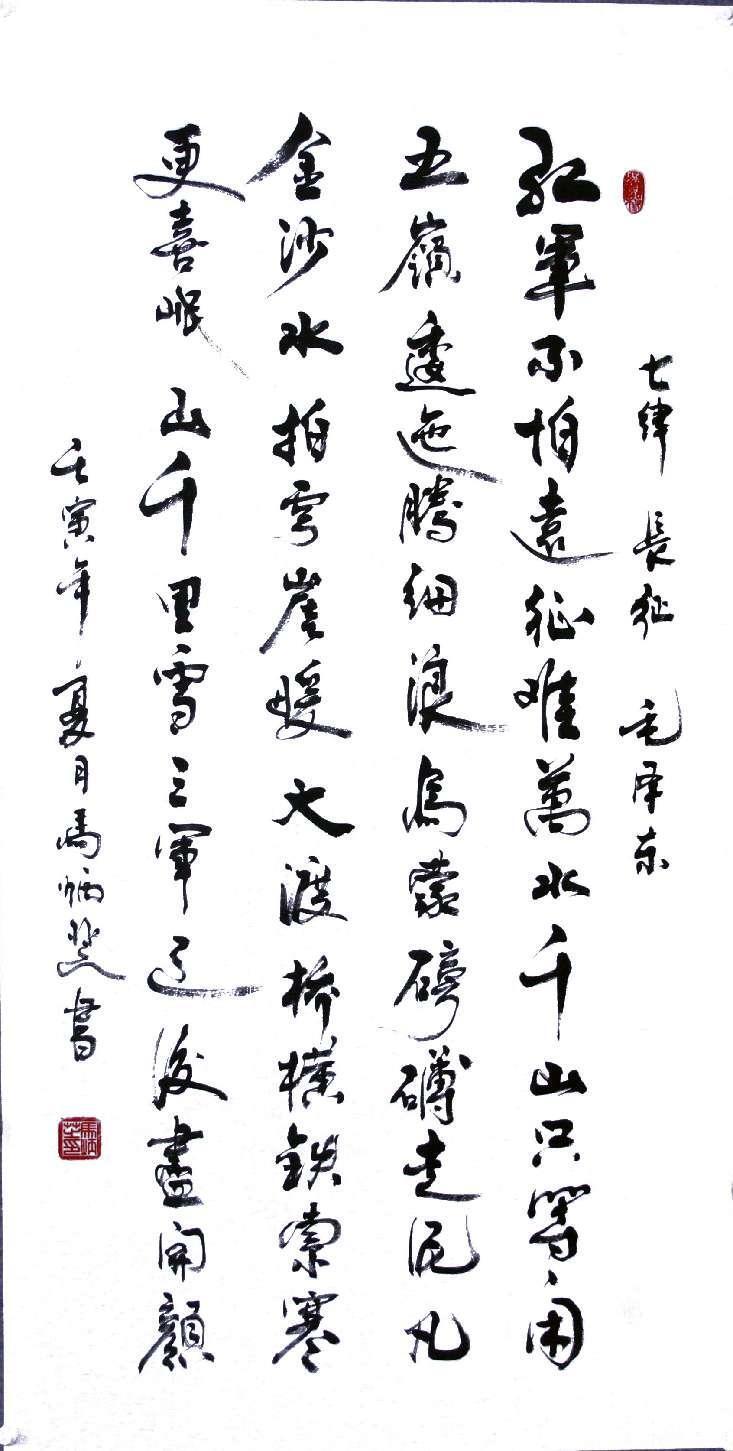 七律 長征 毛泽东
红軍不怕遠征难萬水千山只等闲
五嶺逶迤騰细浪烏蒙磅礴走泥丸
金沙水拍雲崖暖大渡桥横鉄索寒
更喜岷山千里雪三軍过後盡開顔
壬寅年夏月馬炳書